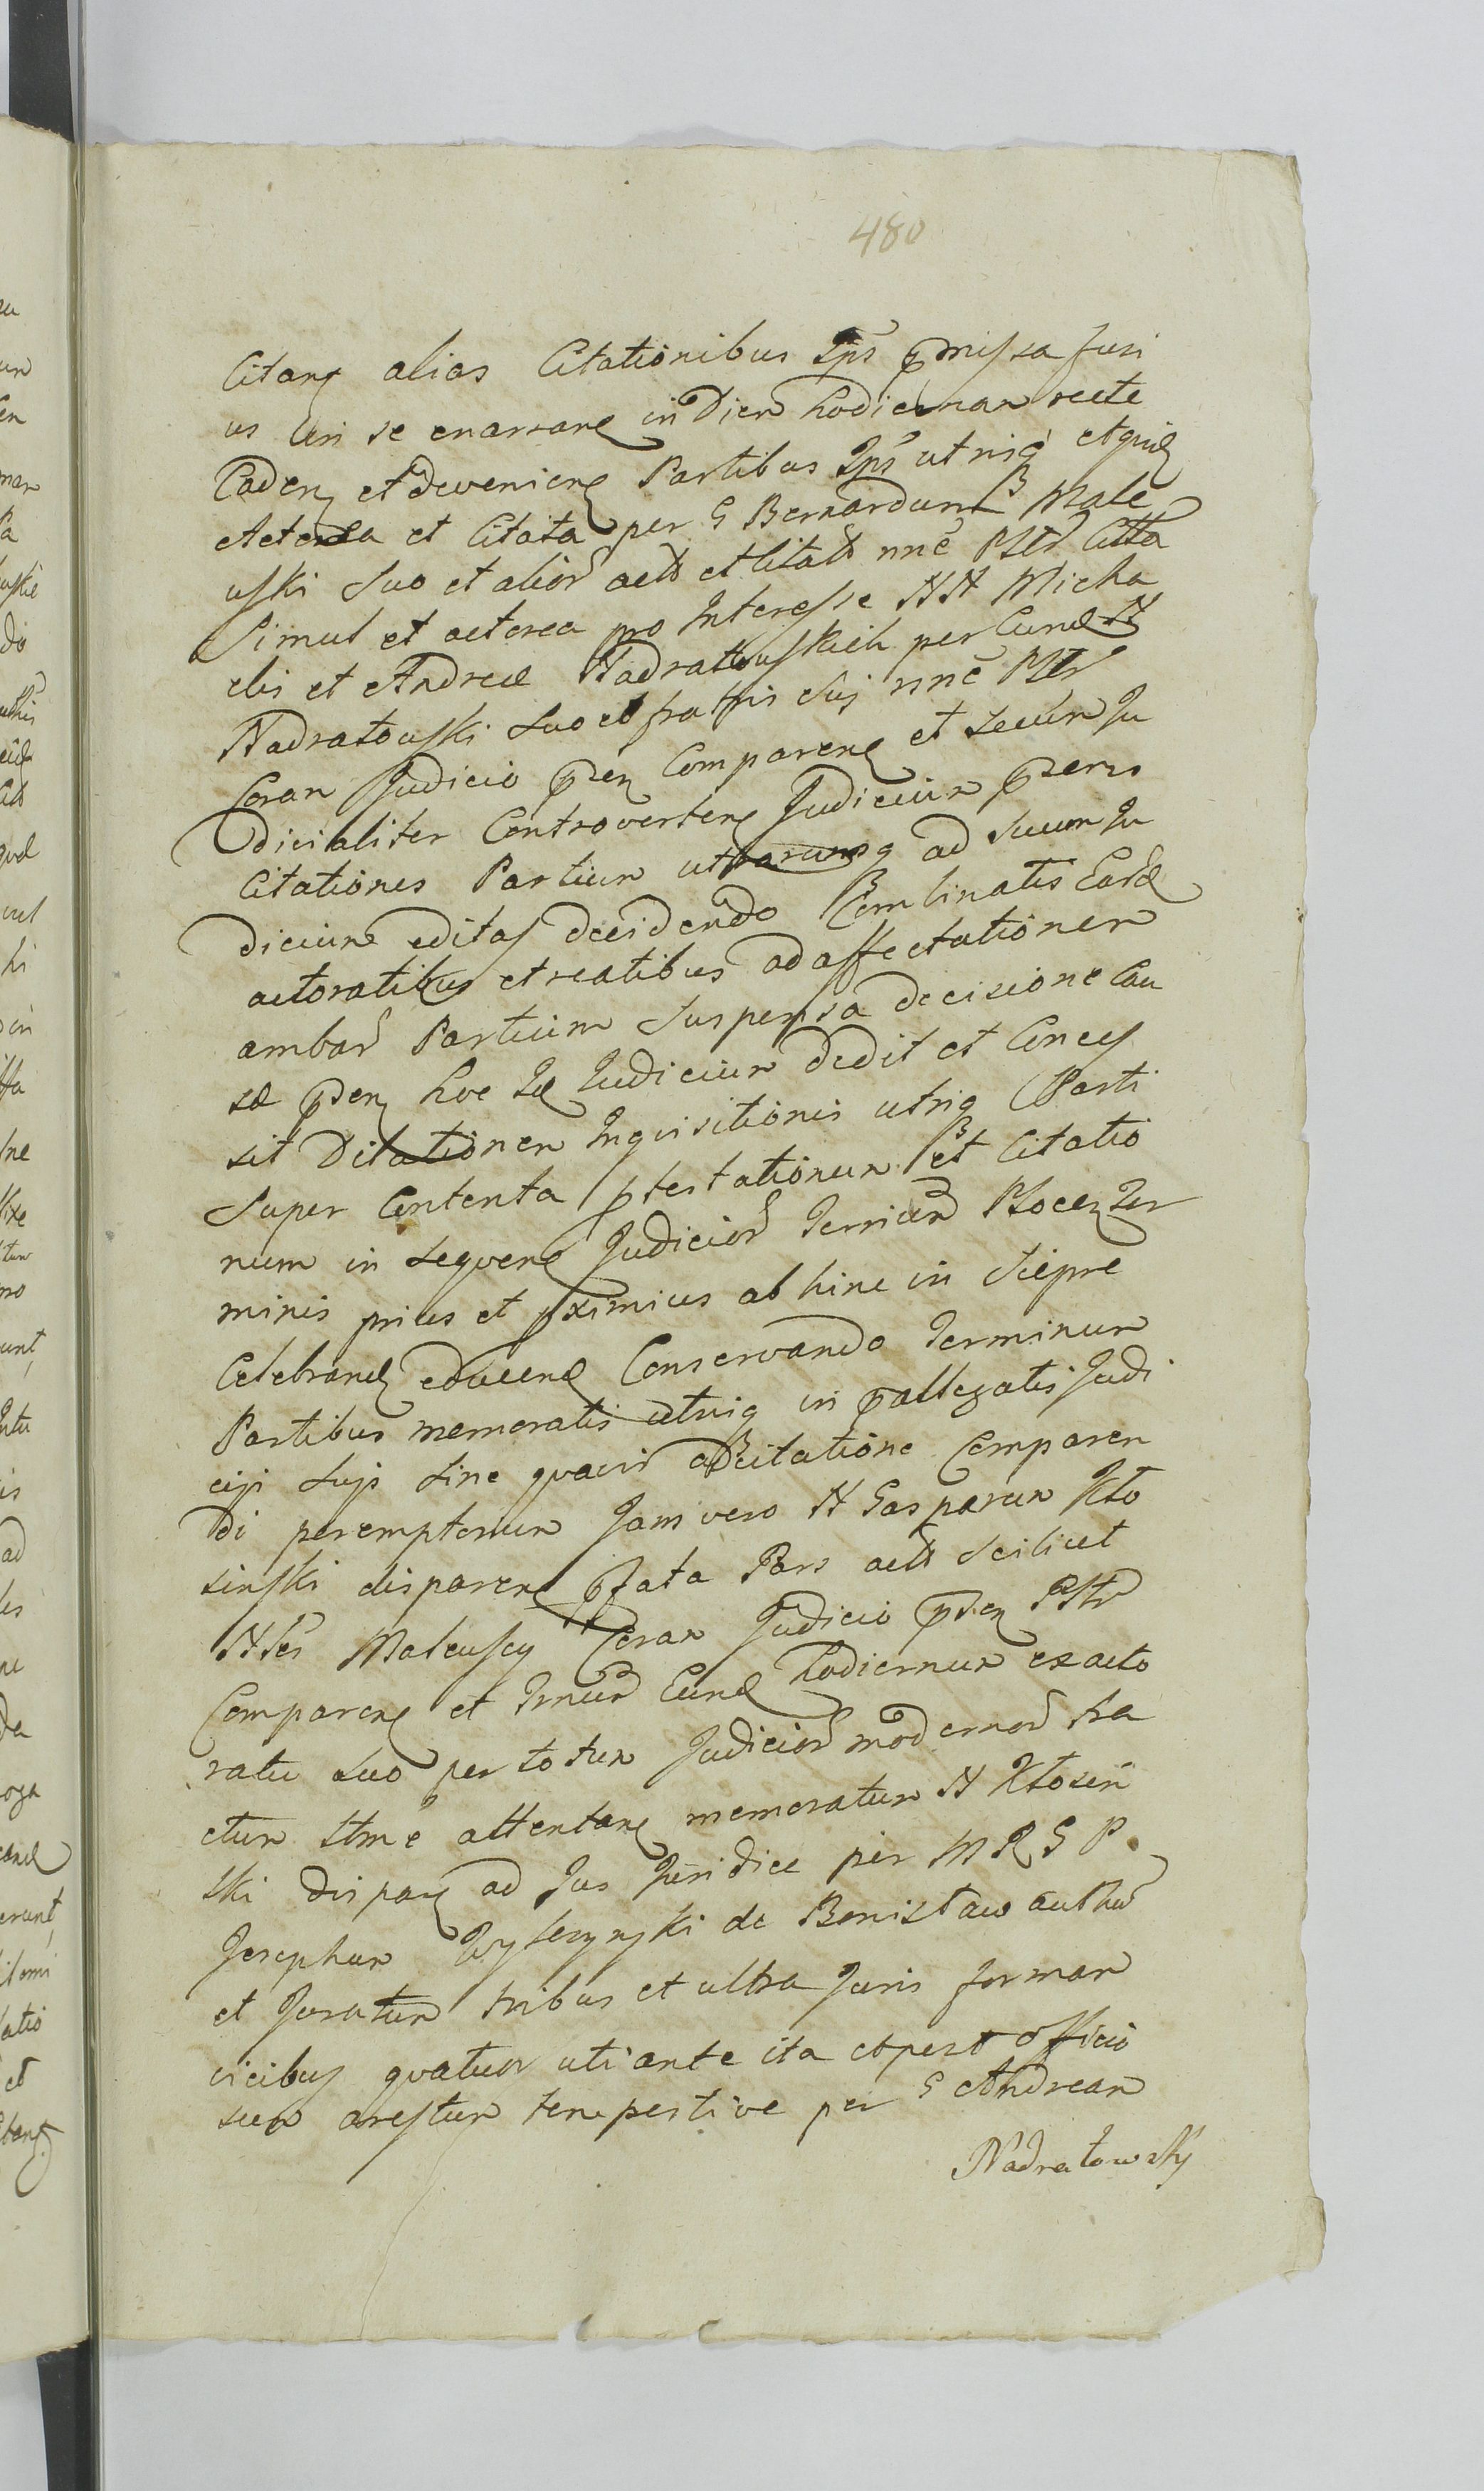 480
Citan alias Citationibus Ips pmissa fusi
us in se enarran in Diem hodiernam recte
Caden et devenien Partibus Ips utrisq et quid
Actorea et Citata per G Bernardum Male
uski suo et alior act et Citat nne Mtr Citta
Simul et actorea pro Interesse NN Micha
elis et Andreæ Nadratowskich per Eund N
Nadratouski suo et fratris sui nne Mtr
Coram Judicio pñ Comparen et secum Ju
dicialiter Controverten Judicium præns
Citationes Partium utrarumq ad suum Ju
dicium editas decidendo Combinatis Eard
actoratibus et reatibus ad affectationem
ambar Partium suspensa decisione Cau
sæ pñ hoc Id Judicium dedit et Conces
sit Dilationem Inquisitionis utriq Parti
super Contenta ptestationum et Citatio
num in sequen Judicior Terrium Plocen Ter
minis prius et pximius ab hinc in Sierpre
Celebrand educend Conservando Terminum
Partibus memoratis utriq in pallegatis Judi
cijs sujs sine quavis adcitatione Comparen
di peremptorium Jam vero N Gasparum Kto
sinski disparen pfata Pars act scilicet
Nles Maleuscy Coram Judicio pñ Mtr
Comparen et Trnum Eund hodiernum ex acto
ratu suo per totum Judicior modernor tra
ctum ttme attentan memoratum N Ktosin
ski dispan ad Jus Juridice per M R G P
Josephum Wyserynski de Bonistaw
et Juratum tribus et ultra Juris formam
vicibus quatuor uti ante ita et post officio
sum arestum tempestive per G Andream
Nadratowsky